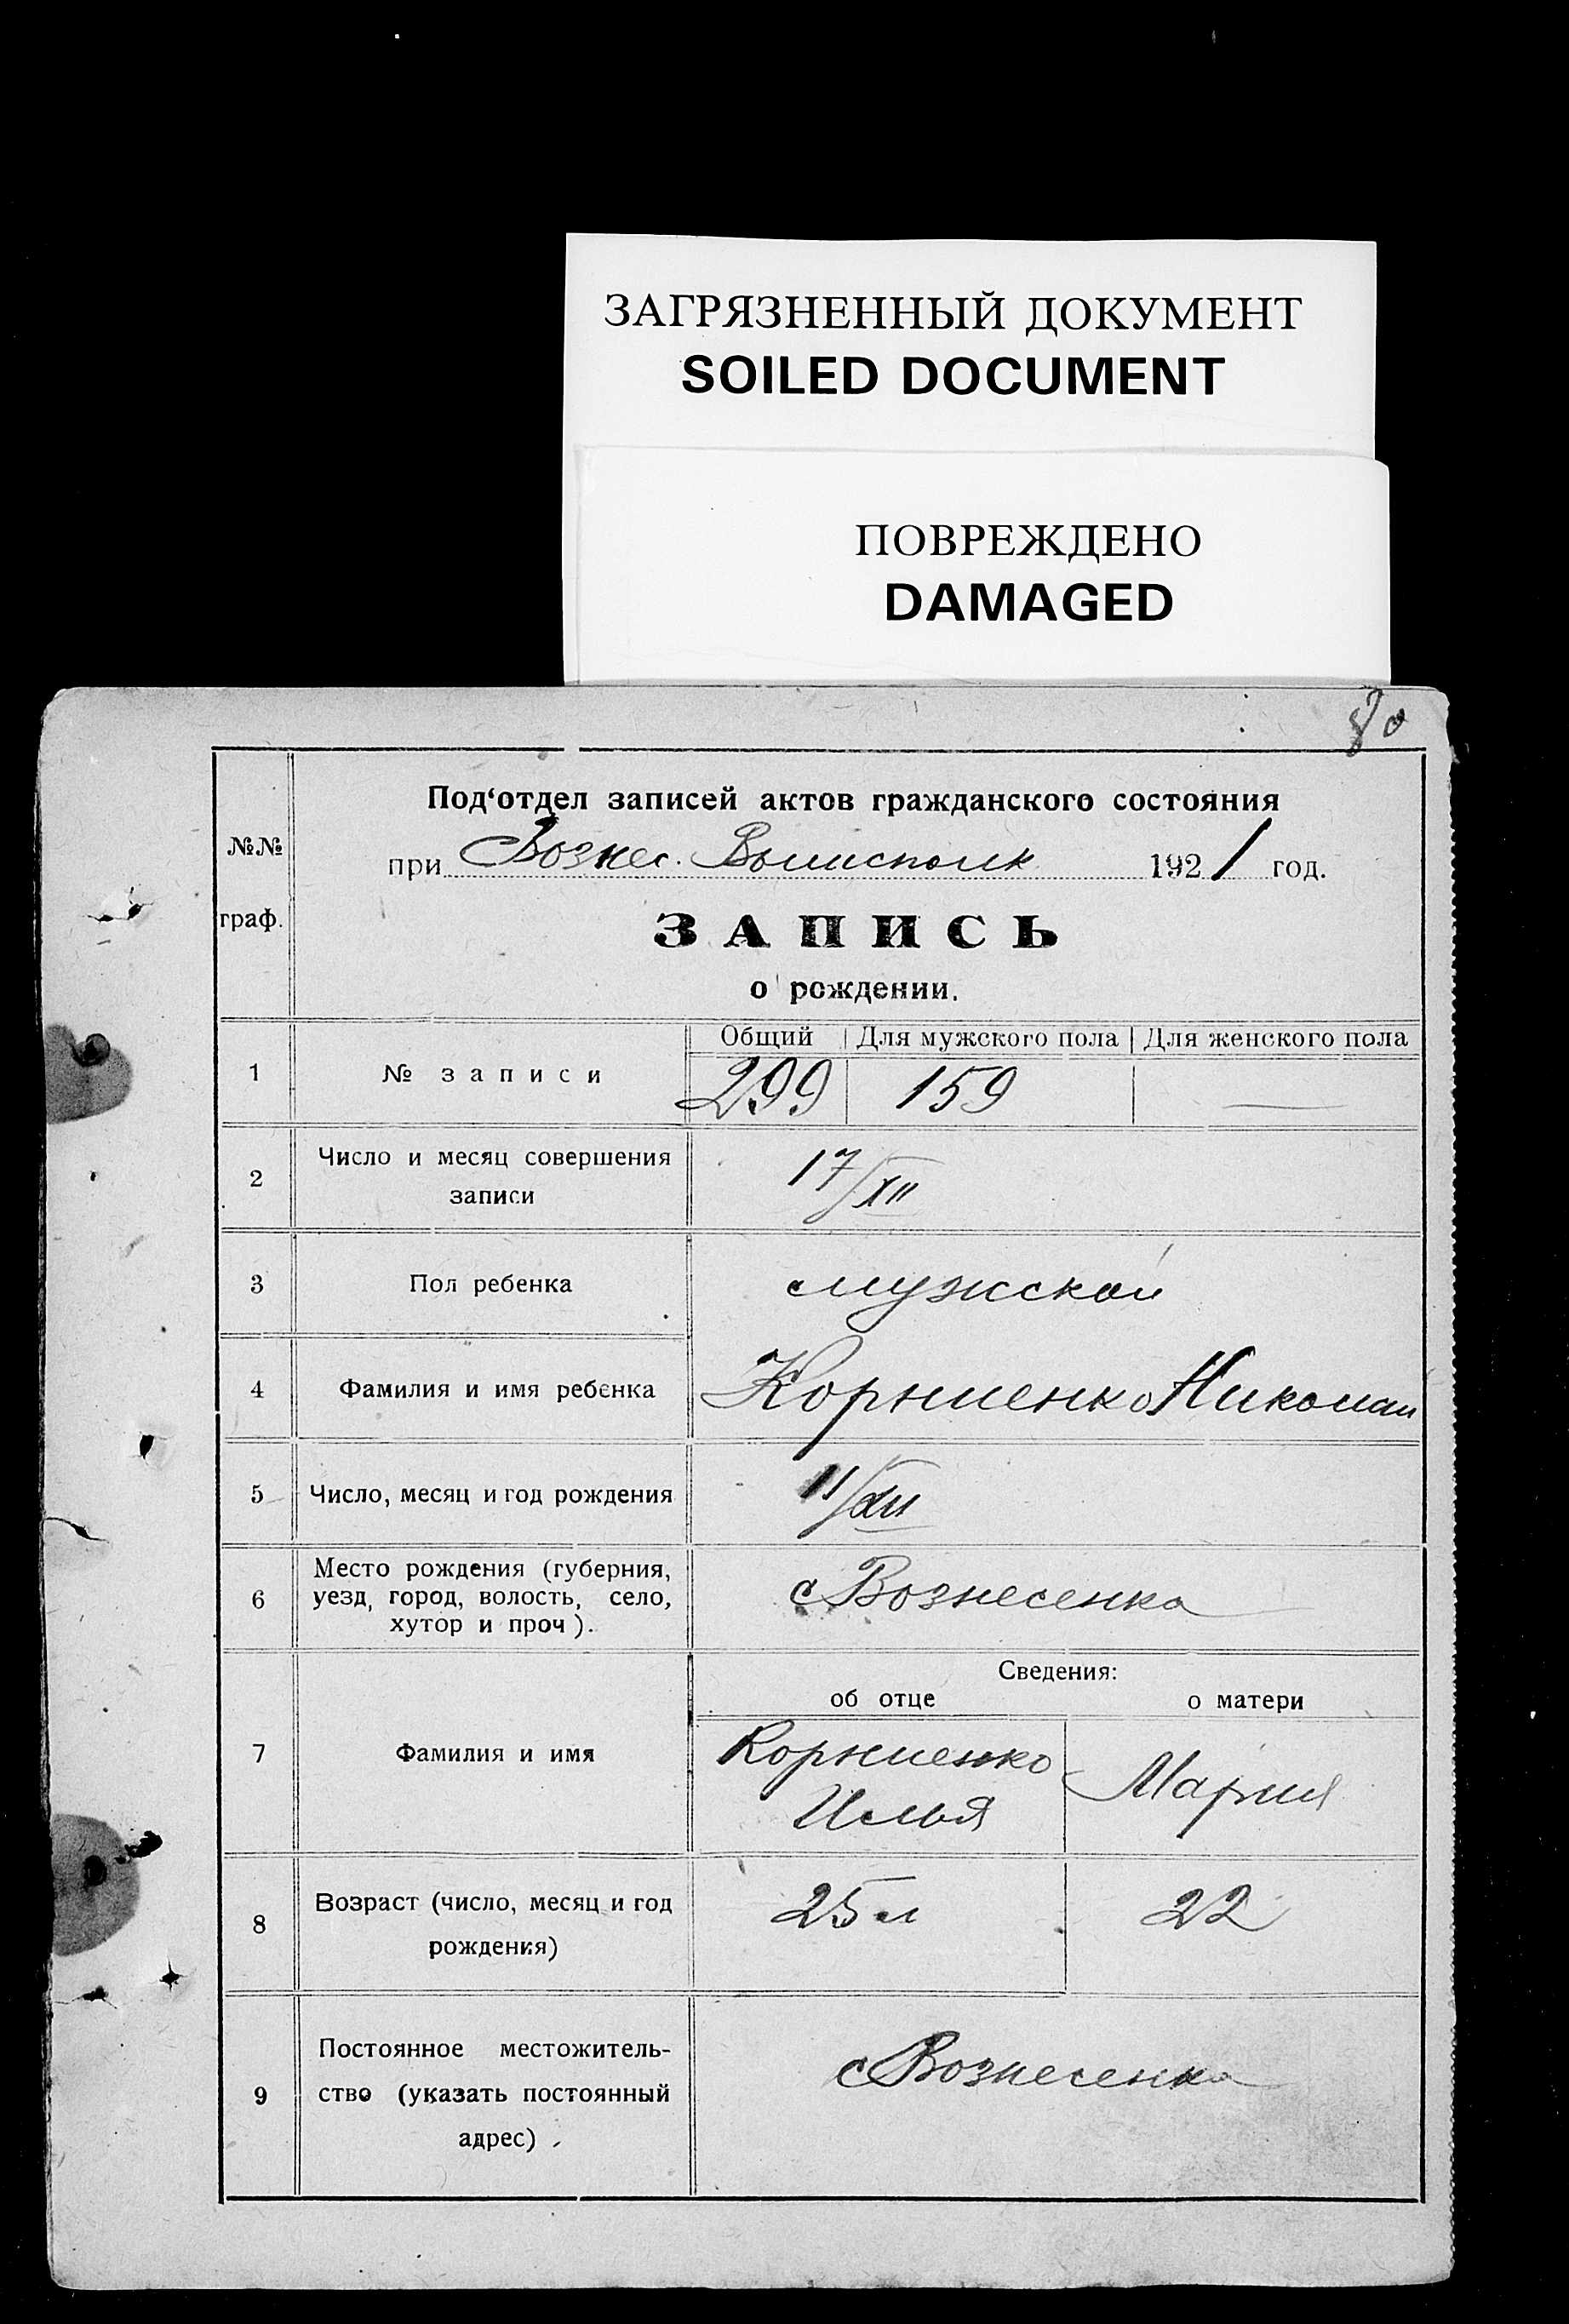 ЗАГРЯЗНЕННЫЙ ДОКУМЕНТ
SOILED DOCUMENT
ПОВРЕЖДЕНО
DAMAGED
80
Под‘отдел записей актов гражданского состояния
№№ граф.
при Вознес. Волисполк 1921 год.
ЗАПИСЬ
о рождении.
Общий Для мужского пола Для женского пола
1 № записи 299 159 —
2 Число и месяц совершения
записи 17/XII
3 Пол ребенка мужской
4 Фамилия и имя ребенка Корниенко Николай
5 Число, месяц и год рождения 11/XII
6 Место рождения (губерния,
уезд, город, волость, село,
хутор и проч). с Вознесенка
Сведения:
об отце о матери
7 Фамилия и имя Корниенко
Илья Мария
8 Возраст (число, месяц и год
рождения) 25 л 22
9 Постоянное местожитель-
ство (указать постоянный
адрес) с Вознесенка